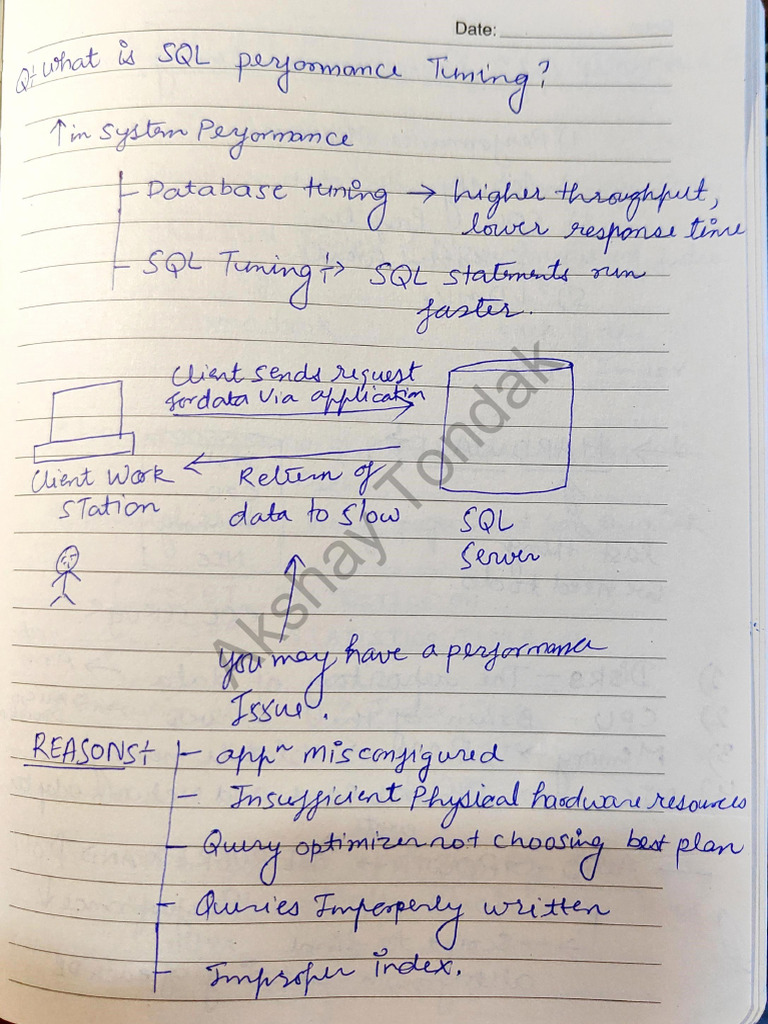 Date:
Q:- What is SQL performance Tuning?
↑ in System Performance
- Database tuning → higher throughput,
lower response time
- SQL Tuning :→ SQL statements run
faster.
Client sends request
for data via application
Client Work
Station
Return of
data to slow
SQL
Server
You may have a performance
Issue.
REASONS:-
- appⁿ misconfigured
- Insufficient Physical hardware resources
- Query optimizer not choosing best plan
- Queries Improperly written
- Improper index.
Akshay Tondak